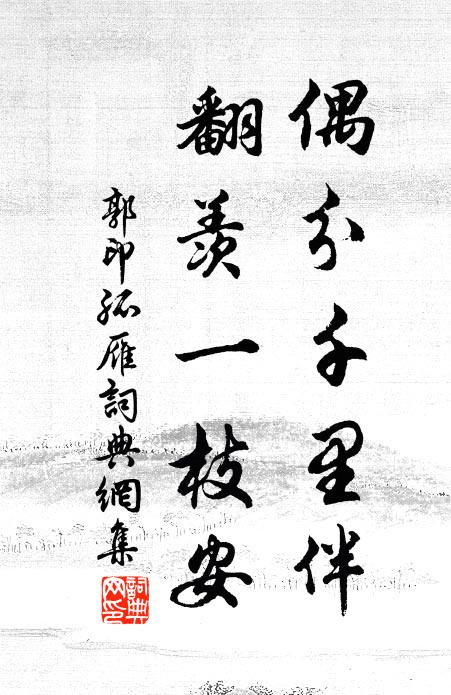 偶分千里伴
翻羨一枝安
郭印孤雁詞典網集
詞典网印